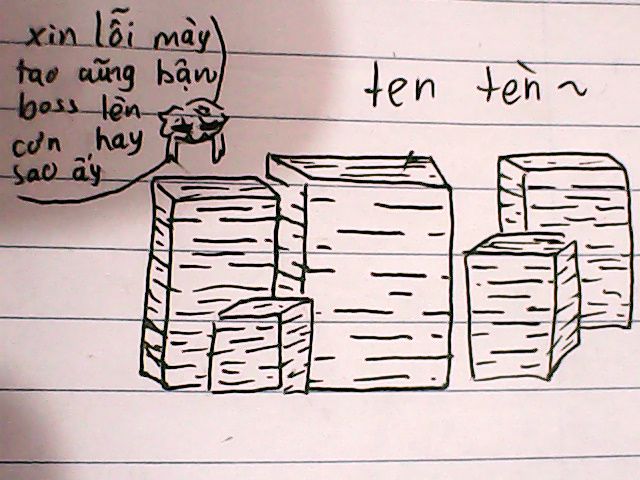 xin lỗi mày
tao cũng bận
boss lên
cơn hay
sao ấy
ten tèn ~